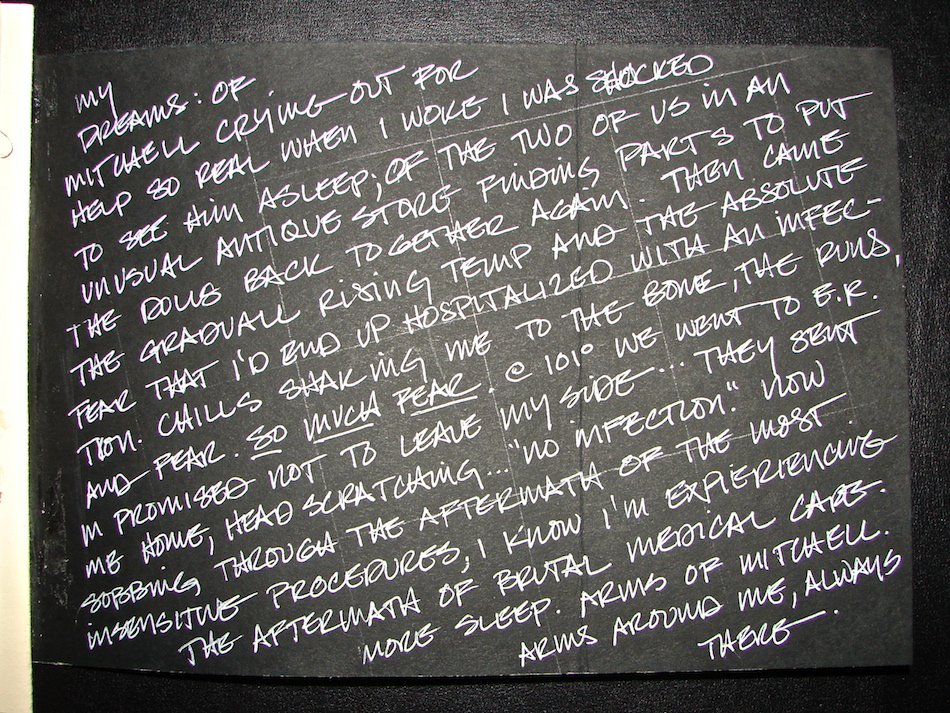 MY
DREAMS: OF
MITCHELL CRYING OUT FOR
HELP SO REAL WHEN I WOKE I WAS SHOCKED
TO SEE HIM ASLEEP; OF THE TWO OF US IN AN
UNUSUAL ANTIQUE STORE FINDING PARTS TO PUT
THE DOLLS BACK TOGETHER AGAIN. THEN CAME
THE GRADUALL RISING TEMP AND THE ABSOLUTE
FEAR THAT I'D END UP HOSPITALIZED WITH AN INFEC-
TION. CHILLS SHAKING ME TO THE BONE, THE RUNS,
AND FEAR. SO MUCH FEAR. @ 101° WE WENT TO E.R.
M PROMISED NOT TO LEAVE MY SIDE... THEY SENT
ME HOME, HEAD SCRATCHING... "NO INFECTION." NOW
SOBBING THROUGH THE AFTERMATH OF THE MOST
INSENSITIVE PROCEDURES, I KNOW I'M EXPIERIENCING
THE AFTERMATH OF BRUTAL MEDICAL CARE.
MORE SLEEP. ARMS OF MITCHELL.
ARMS AROUND ME, ALWAYS
THERE.